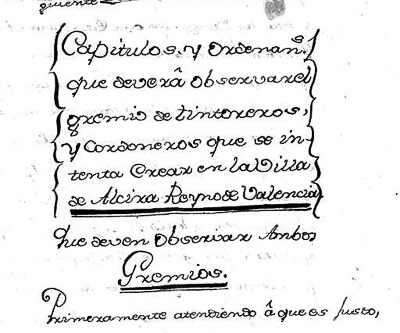 guiente
Capitulos. y ordenan.s
que deverâ observar el
gremio de tintoreros,
y Cordoneros que se in-
tenta Crear en la Villa
de Alcira Reyno de Valencia
que deven observar Ambos
Gremios.
Primeramente atendiendo â que es justo,